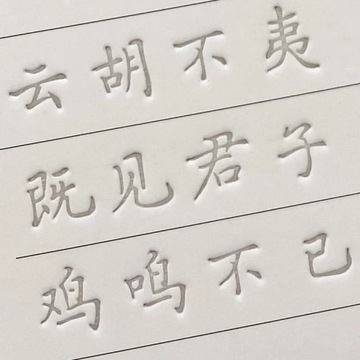 云胡不夷
既见君子
鸡鸣不已